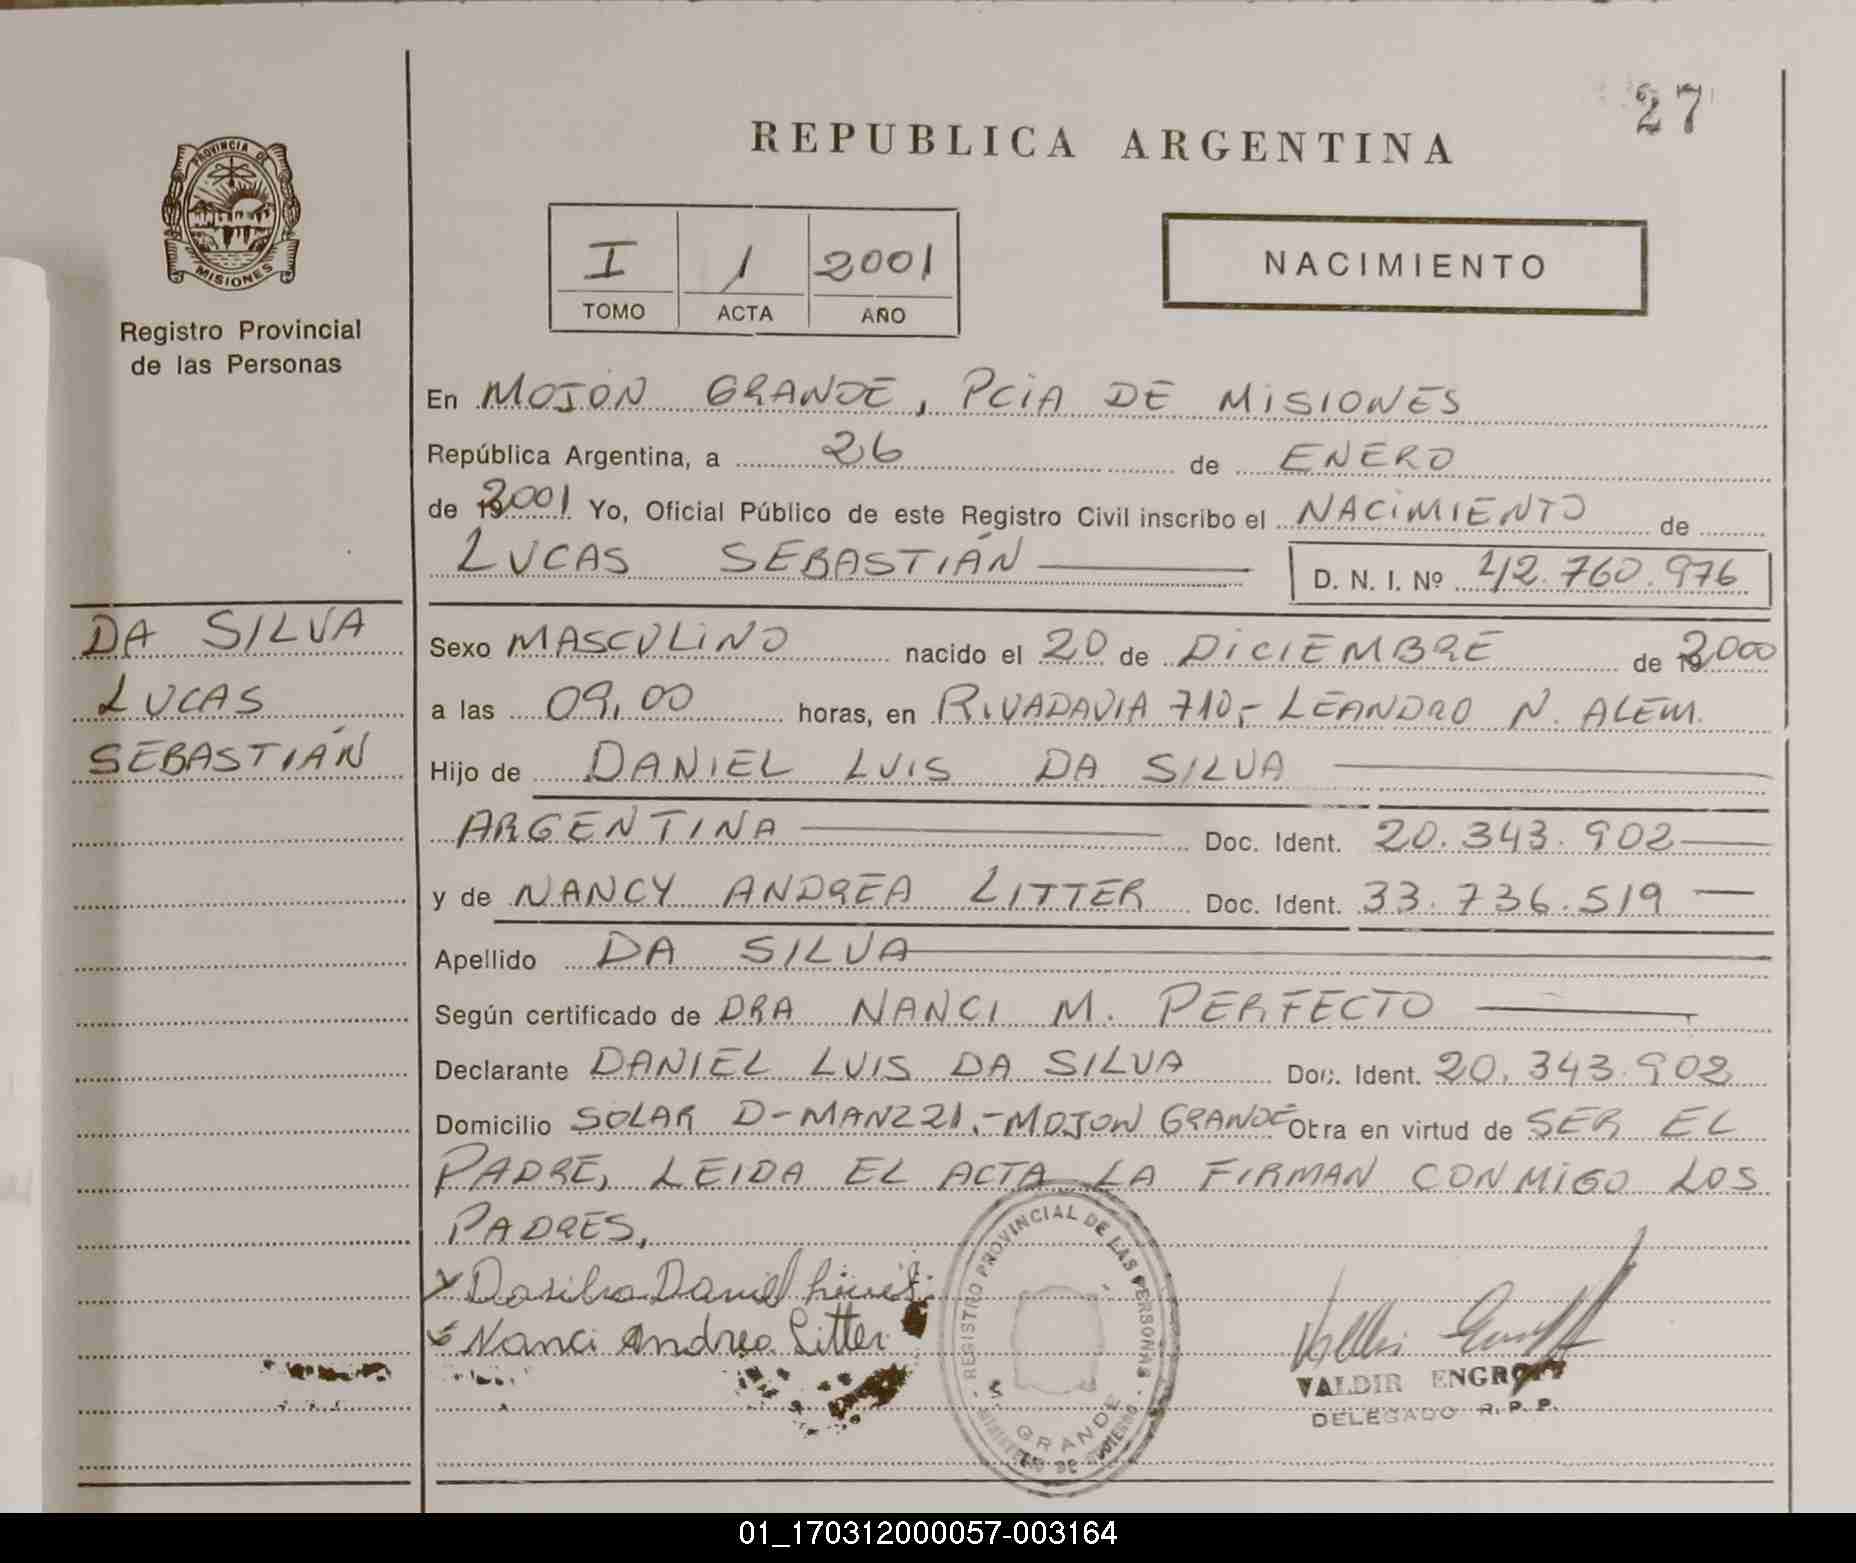 27
REPUBLICA ARGENTINA
PROVINCIA DE
MISIONES
Registro Provincial
de las Personas
I 1 2001
TOMO ACTA AÑO
NACIMIENTO
En MOJON GRANDE, PCIA DE MISIONES
República Argentina, a 26 de ENERO
de 2001 Yo, Oficial Público de este Registro Civil inscribo el NACIMIENTO de
LUCAS SEBASTIÁN
D. N. I. Nº 42.760.976
DA SILVA
LUCAS
SEBASTIÁN
Sexo MASCULINO nacido el 20 de DICIEMBRE de 2000
a las 09,00 horas, en RIVADAVIA 710,- LEANDRO N. ALEM.
Hijo de DANIEL LUIS DA SILVA
ARGENTINA Doc. Ident. 20.343.902
y de NANCY ANDREA LITTER Doc. Ident. 33.736.519
Apellido DA SILVA
Según certificado de DRA NANCI M. PERFECTO
Declarante DANIEL LUIS DA SILVA Doc. Ident. 20.343.902
Domicilio SOLAR D-MANZ 21,-MOJON GRANDE Obra en virtud de SER EL
PADRE, LEIDA EL ACTA LA FIRMAN CONMIGO LOS
PADRES,
Dasilva Daniel Luis
Nanci Andrea Litter
REGISTRO PROVINCIAL DE LAS PERSONAS
GRANDE
VALDIR ENGROFF
DELEGADO R. P. P.
01_170312000057-003164